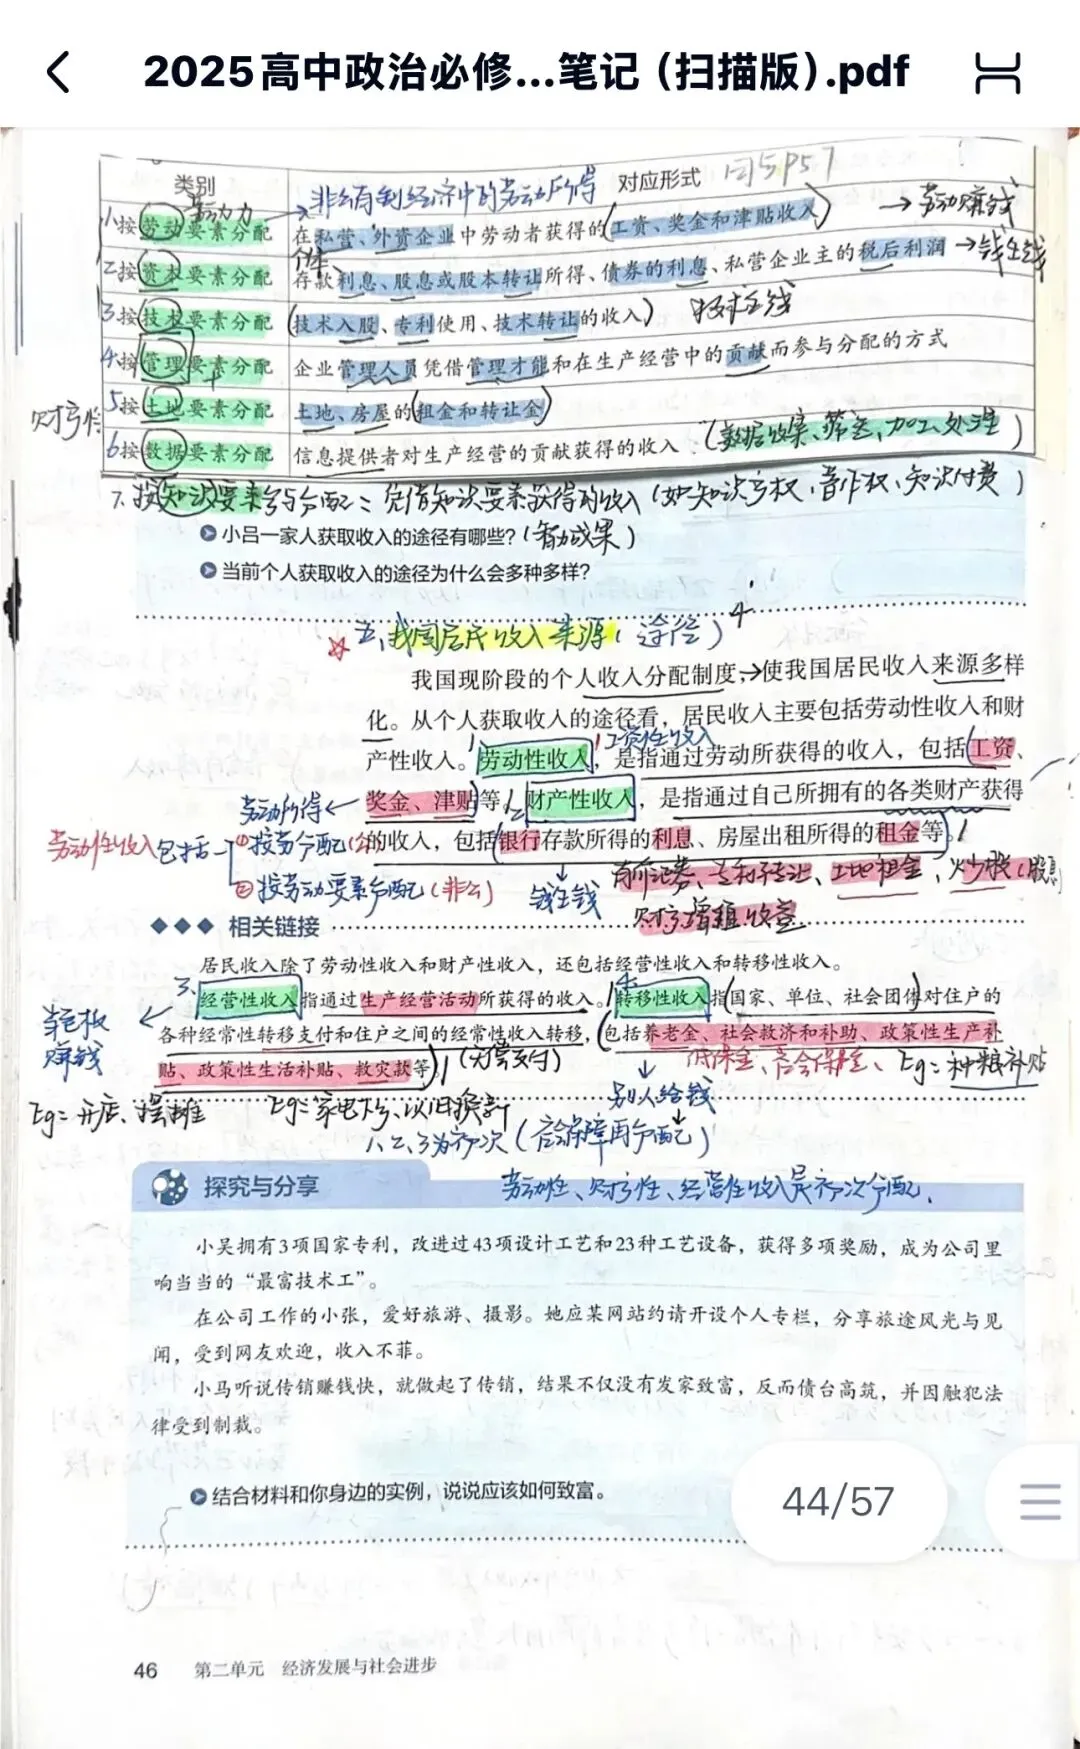 2025高中政治必修...笔记（扫描版）.pdf
类别 对应形式 同步P57
劳动力 → 非公有制经济中的劳动所得
1.按劳动要素分配 在私营、外资企业中劳动者获得的（工资、奖金和津贴收入） → 劳动赚钱
个体、
2按资本要素分配 存款利息、股息或股本转让所得、债券的利息、私营企业主的税后利润 → 钱生钱
3按技术要素分配 （技术入股、专利使用、技术转让的收入） 技术生钱
4按管理要素分配 企业管理人员凭借管理才能和在生产经营中的贡献而参与分配的方式
5按土地要素分配 土地、房屋的（租金和转让金）
财产性
6按数据要素分配 信息提供者对生产经营的贡献获得的收入 （数据收集、筛选、加工、处理）
7.按知识要素参与分配：凭借知识要素获得的收入（如知识产权、著作权、知识付费）
小吕一家人获取收入的途径有哪些？（智力成果）
当前个人获取收入的途径为什么会多种多样？
☆ 二、我国居民收入来源（途径） 4'
我国现阶段的个人收入分配制度→使我国居民收入来源多样
化。从个人获取收入的途径看，居民收入主要包括劳动性收入和财
工资性收入
产性收入。劳动性收入，是指通过劳动所获得的收入，包括（工资、
奖金、津贴等。2财产性收入，是指通过自己所拥有的各类财产获得
劳动所得 ←
的收入，包括（银行存款所得的利息、房屋出租所得的租金等）。
劳动性收入包括
①按劳分配（公）
②按劳动要素分配（非公）
↓ 钱生钱
有价证券、专利转让、土地租金、炒股（股息
财产增值收益
◆◆◆ 相关链接
居民收入除了劳动性收入和财产性收入，还包括经营性收入和转移性收入。
3、经营性收入指通过生产经营活动所获得的收入。4转移性收入指（国家、单位、社会团体）对住户的
各种经常性转移支付和住户之间的经常性收入转移，（包括养老金、社会救济和补助、政策性生产补
当老板
赚钱
贴、政策性生活补贴、救灾款等） （无偿支付） 低保金、社会保险金、 Eg：种粮补贴
Eg：开店、摆摊 Eg：家电下乡、以旧换新
↓
别人给钱
↓
1、2、3为初次（社会保障再分配）
探究与分享 劳动性、财产性、经营性收入是初次分配.
小吴拥有3项国家专利，改进过43项设计工艺和23种工艺设备，获得多项奖励，成为公司里
响当当的“最富技术工”。
在公司工作的小张，爱好旅游、摄影。她应某网站约请开设个人专栏，分享旅途风光与见
闻，受到网友欢迎，收入不菲。
小马听说传销赚钱快，就做起了传销，结果不仅没有发家致富，反而债台高筑，并因触犯法
律受到制裁。
结合材料和你身边的实例，说说应该如何致富。
44/57
46 第二单元 经济发展与社会进步